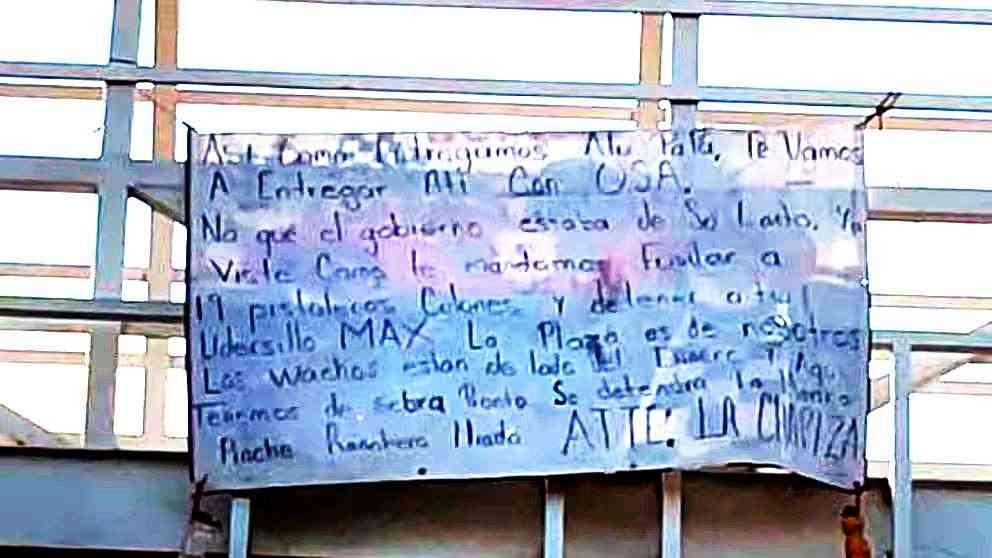 Así Como Entregamos Atu PaPá, Te Vamos
A Entregar Ati Con USA.
No que el gobierno estaba de Su Lado, Ya
Viste Como le mandamos Fusilar a
19 pistolocos Colones y detener a tu
Lidersillo MAX La Plaza es de nosotros
Los wachos estan de lado del Y Aqui
Tenemos de sobra Se detendra la
Ranchero Lloron ATTE: LA CHAPIZA